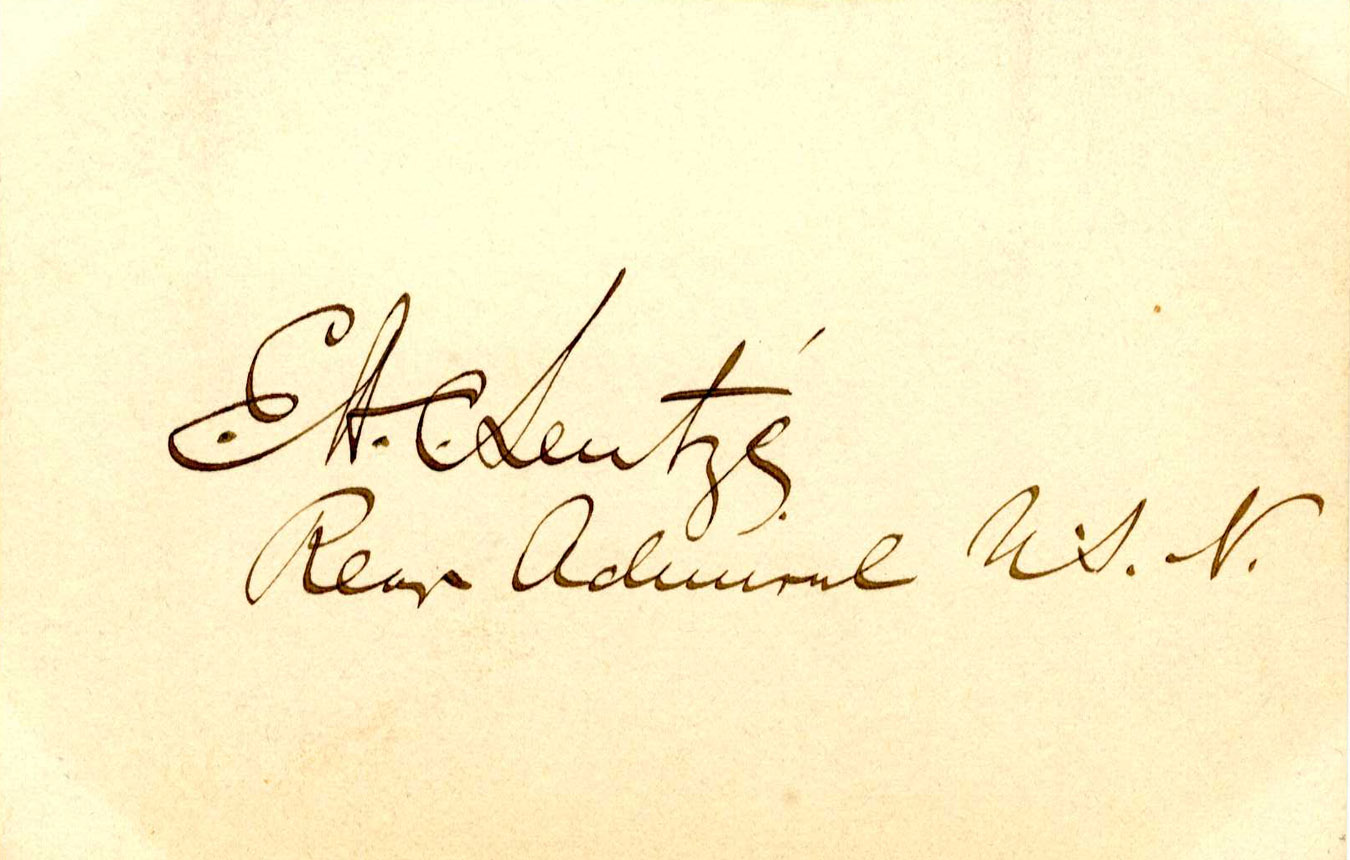 E. H. C. Leutzé.
Rear Admiral U.S.N.